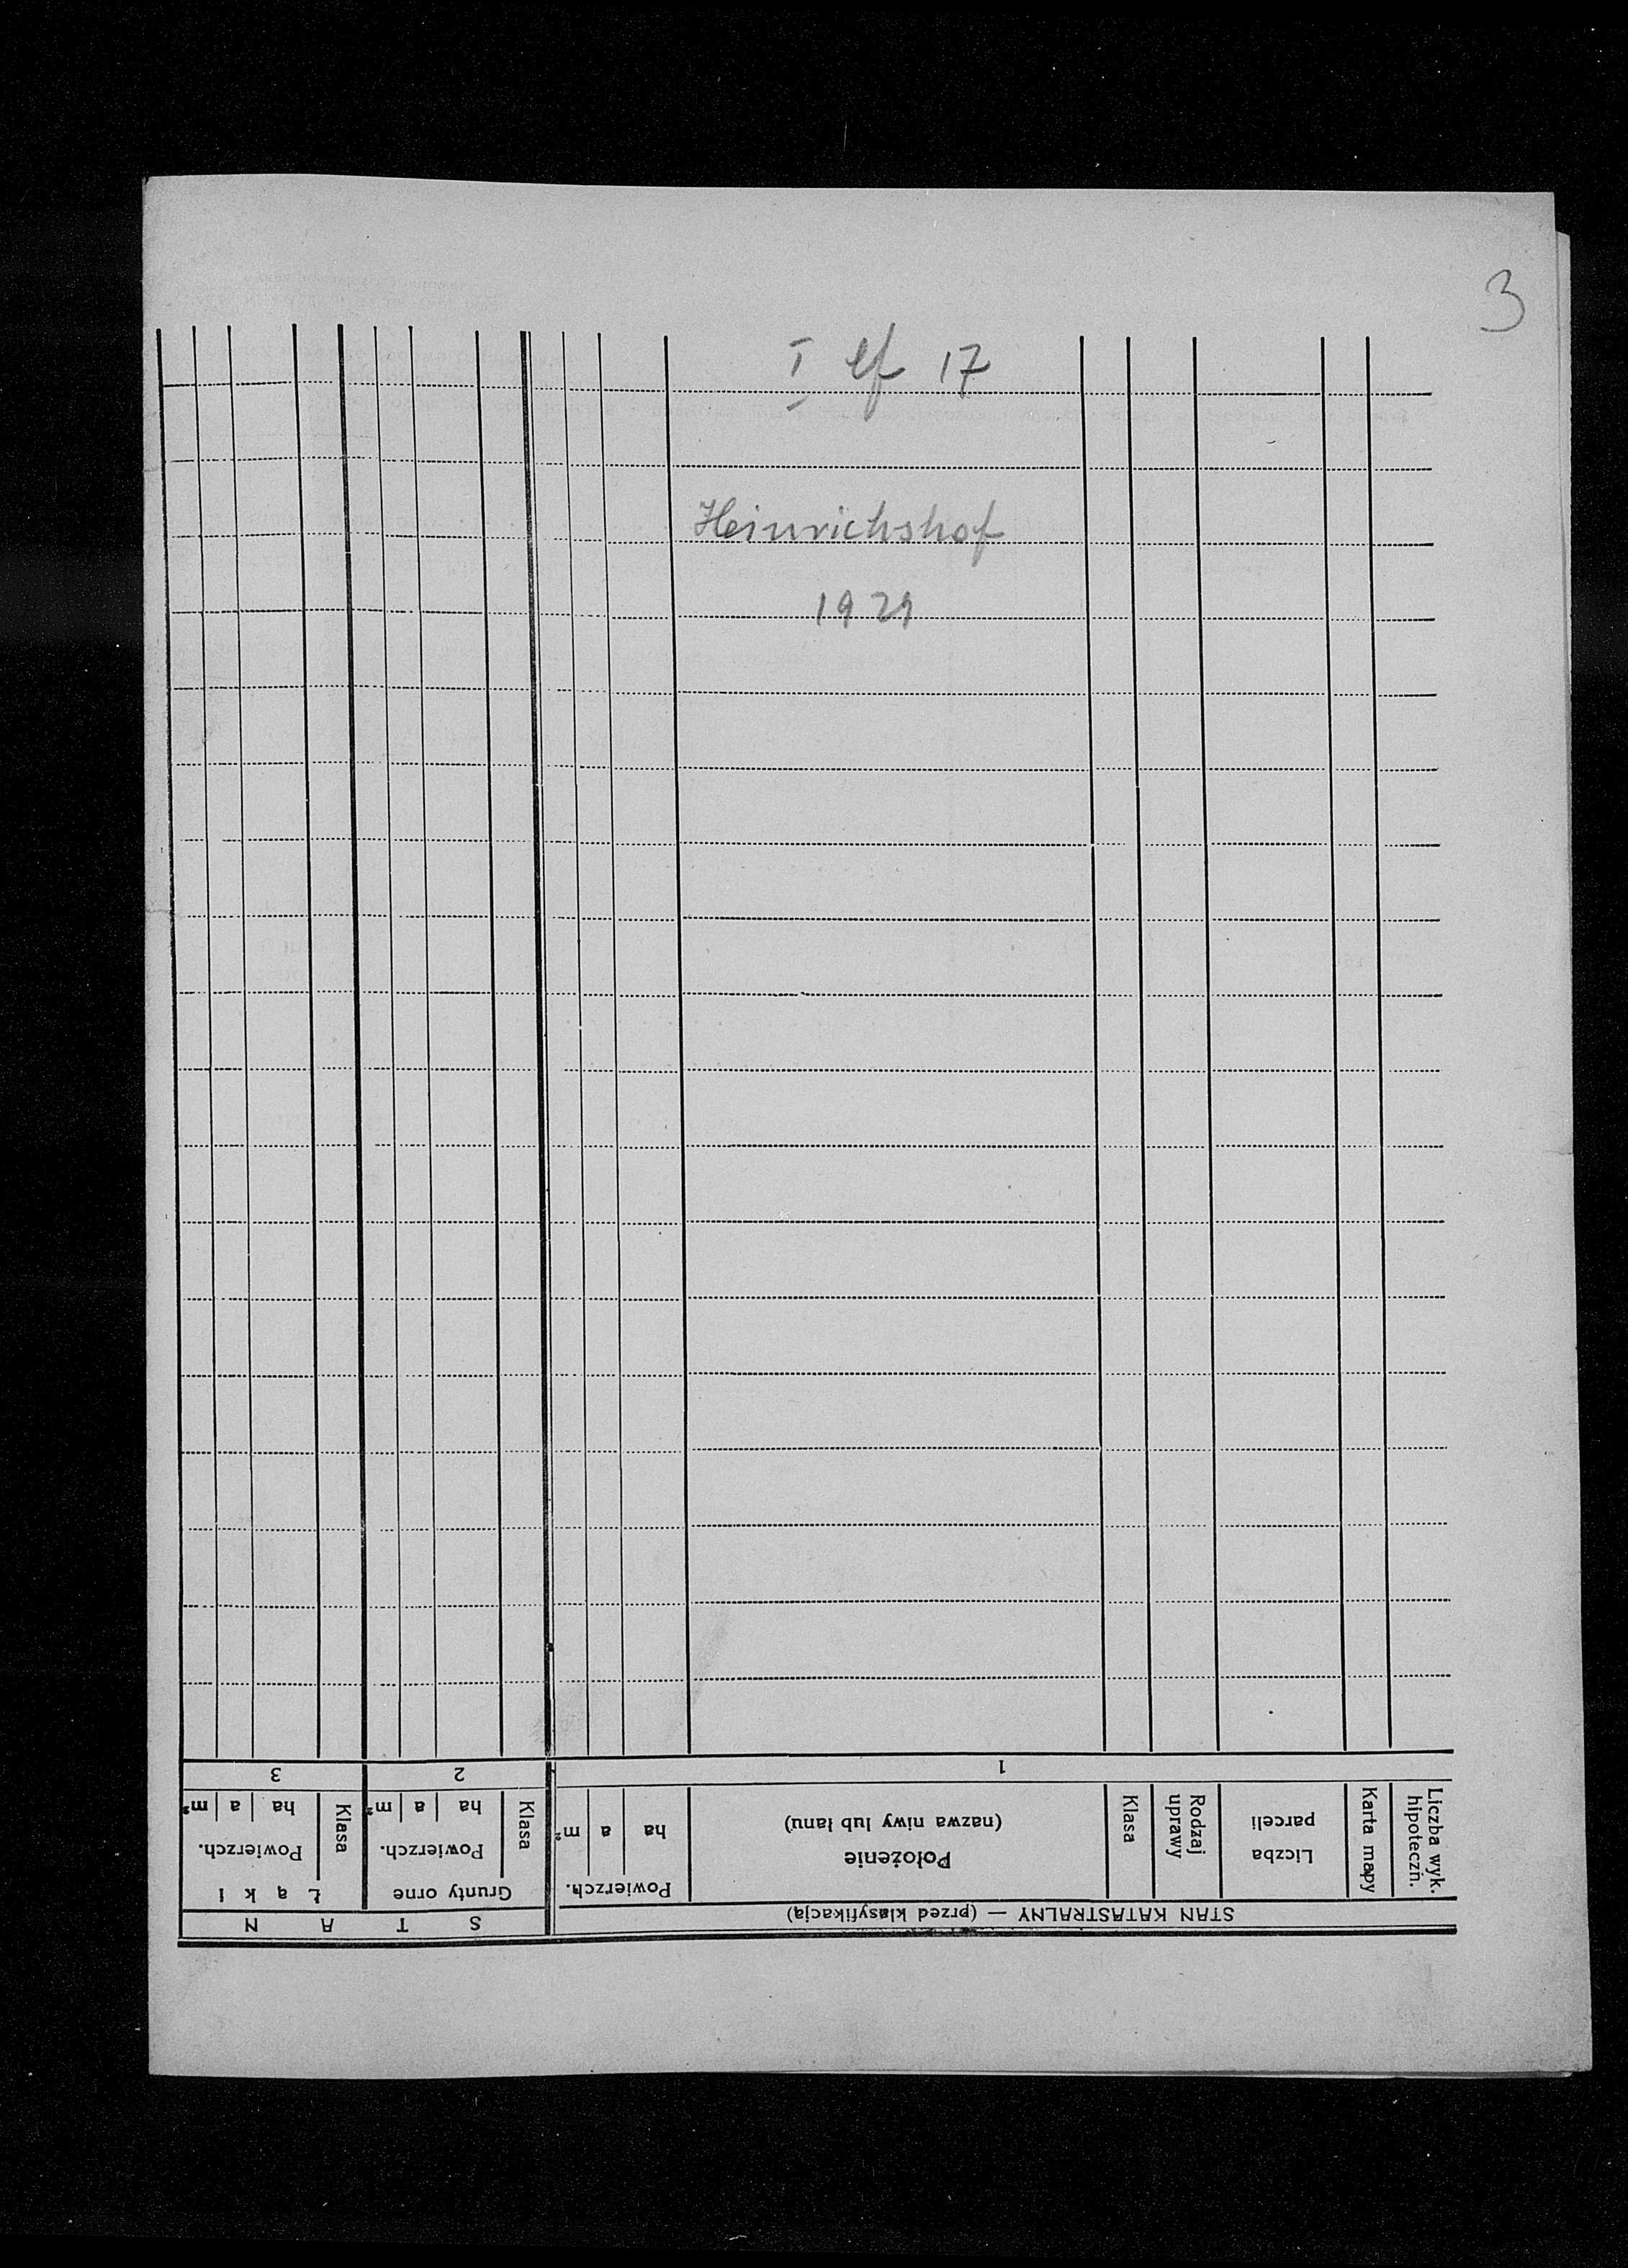 3
I ef 17
Heinrichshof
1929
STAN KATASTRALNY — (przed klasyfikacją)
S T A N
Liczba wyk. hipoteczn.
Karta mapy
Liczba parceli
Rodzaj uprawy
Klasa
Położenie
(nazwa niwy lub łanu)
Powierzch.
ha a m²
Grunty orne
Klasa
Powierzch.
ha a m²
Łąki
Klasa
Powierzch.
ha a m²
1 2 3